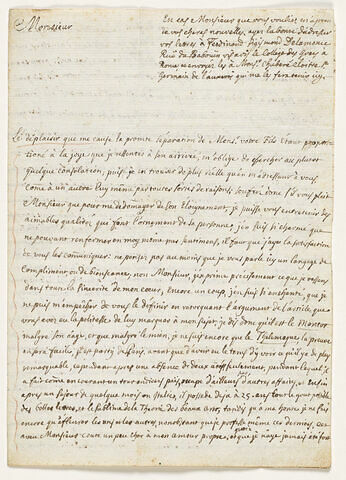 Monsieur
En cas Monsieur que vous vouliez m'apprendre
de vos cheres nouvelles, ayez la bonté d'adresser
vos lettres à Ferdinand Delamonce
Ruë du Babouin vis à vis le College des Grecs à
Rome
Germain de l'auxerois qui me les fera tenir icy.
Le deplaisir que me cause la promte separation de Mons.r votre Fils étant proportionné
à la joye que je ressentis à son arrivée, m'oblige de chercher au plutot
quelque consolation, puis je en trouver de plus réelle qu'en m'adressant à vous
come à un autre luy même par toutes sortes de raisons. Soufrez donc s'il vous plait
Monsieur que pour me dedomager de son éloignement, je puisse vous entretenir des
aimables qualités qui font l'ornement de sa personne, j'en suis si charmé que
ne pouvant renfermer en moy meme mes sentimens, il faut que j'aye la satisfaction
de vous les comuniquer: ne pensez pas au moins que je vous parle icy un langage de
compliment ou de bienseance, non Monsieur, j'exprime precisement ce que je ressens
dans toute la sincerité de mon cœur, Encore un coup, j'en suis si enchanté, que je
ne puis m'empêcher de vous le definir en retorquant l'argument de l'article que
vous avez eu la politesse de luy marquer à mon sujet; je dis donc qu'il est le Mentor
malgré son âge, et que malgré le mien, je ne suis encore que le Thelemaque; la preuve
en est facile,
remarquable, cependant apres une absence de deux ans seulement, pendant lequel il
a fait come en courant un tour d'ailleurs d'autres affaires, et enfin
apres un sejour de quelques mois en Italie, il possede dejà à 25. ans tout le gout possible
des belles lettres, et le sublime de la Theorie des beaux arts, tandis qu'à ma honte je n'ai fait
encore qu'effleurer les uns et les autres, nonobstant que je professe même ces derniers,
avec Monsieur coute un peu cher à mon amour propre,